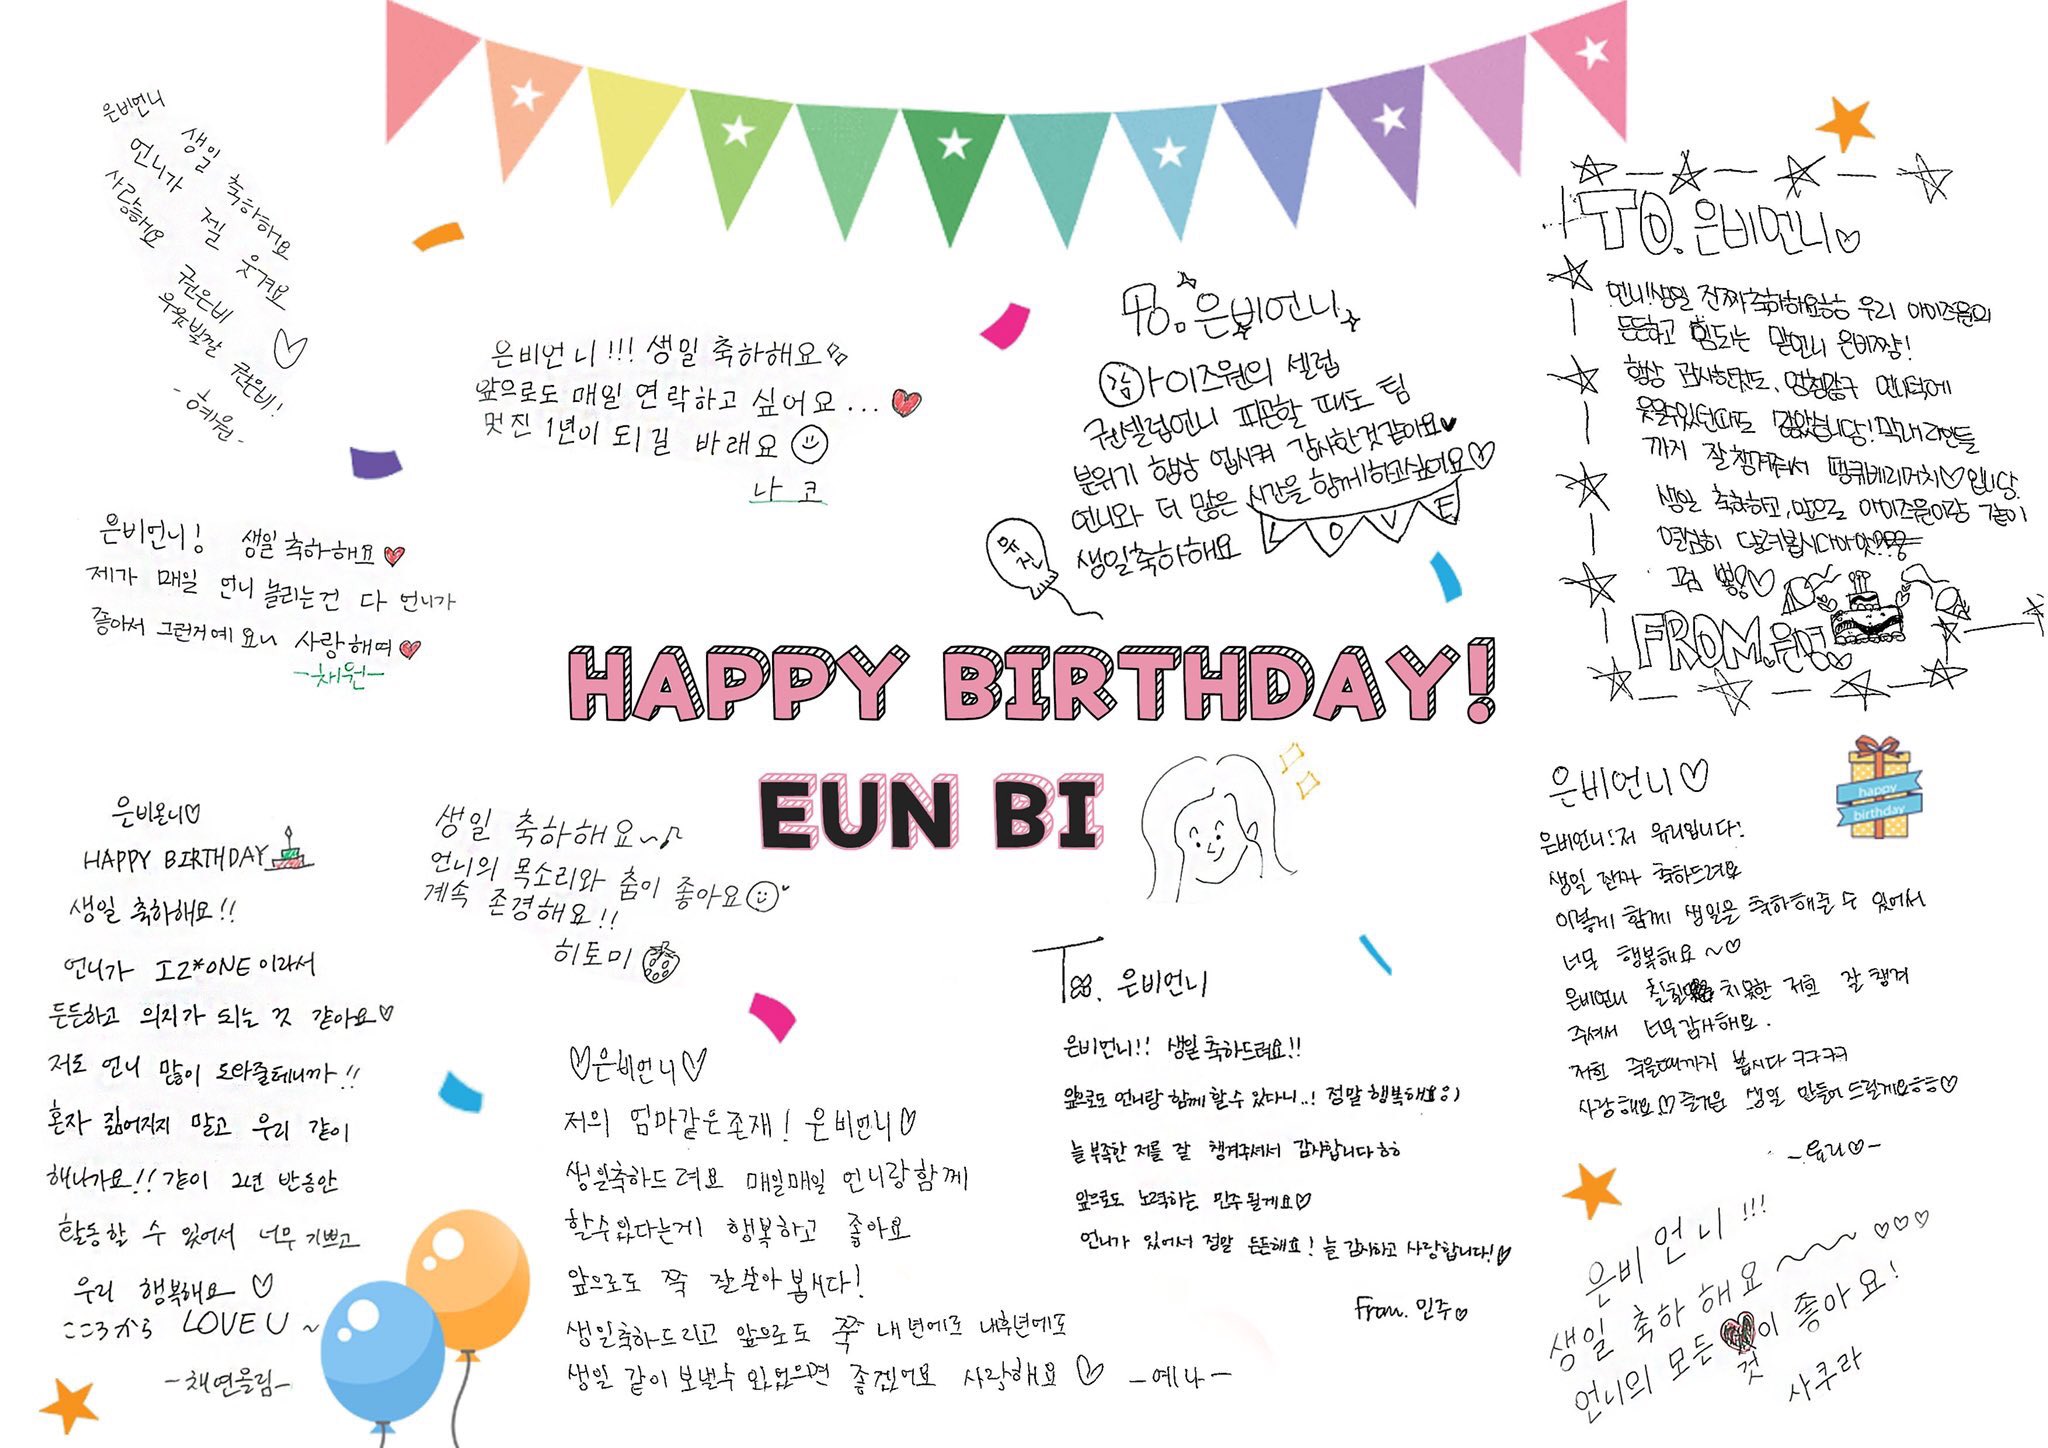 은비언니
생일 축하해요
언니가 젤 웃겨요
사랑해요
권은비
우윳빛깔 권은비!
-혜원-
은비언니!!! 생일 축하해요
앞으로도 매일 연락하고 싶어요...
멋진 1년이 되길 바래요
나코
To. 은비언니
아이즈원의 셀럽
권셀럽언니 피곤할 때도 팀
분위기 항상 업시켜 감사한것같아요♥
언니와 더 많은 시간을 함께하고싶어요♡
LOVE
생일축하해요
TO. 은비언니♡
언니!생일 진짜축하해요 우리 아이즈원의
든든하고 힘되는 맏언니 은비짱!
항상 감사한것도, 엄청많구 언니덕에
웃을수있던때도 많았습니당! 막내라인들
까지 잘챙겨줘서 땡큐베리머치♡입니당.
생일 축하하고, 앞으로 아이즈원이랑 같이
열심히 달려봅시다아앗
그럼 뿅!♡
FROM.원영
은비언니! 생일축하해요♥
제가 매일 언니 놀리는건 다 언니가
좋아서 그런거예요~ 사랑해여♥
-채원-
HAPPY BIRTHDAY!
EUN BI
은비온니♡
HAPPY BIRTHDAY
생일 축하해요!!
언니가 IZ*ONE이라서
든든하고 의지가 되는 것 같아요♡
저도 언니 많이 도와줄테니까!!
혼자 짊어지지 말고 우리 같이
해나가요!! 같이 2년 반동안
활동할 수 있어서 너무 기쁘고
우리 행복해요 ♡
こころから LOVE U ~
-채연올림-
생일 축하해요~♪
언니의 목소리와 춤이 좋아요
계속 존경해요!!
히토미
♡은비언니♡
저의 엄마같은존재! 은비언니♡
생일축하드려요 매일매일 언니랑함께
할수있다는게 행복하고 좋아요
앞으로도 쭉 잘살아봅시다!
생일축하드리고 앞으로도 쭉 내년에도 내후년에도
생일 같이 보낼수 있었으면 좋겠어요 사랑해요 ♡ -예나-
To. 은비언니
은비언니!! 생일축하드려요!!
앞으로도 언니랑 함께 할수 있다니..! 정말행복해요:)
늘 부족한 저를 잘 챙겨주셔서 감사합니다ㅎㅎ
앞으로도 노력하는 민주될게요♡
언니가 있어서 정말 든든해요! 늘 감사하고 사랑합니다!♡
From. 민주♡
happy
birthday
은비언니♡
은비언니! 저 유리입니다!
생일 진짜 축하드려요
이렇게 함께 생일은 축하해줄 수 있어서
너무 행복해요~♡
은비언니 치못한 저희 잘 챙겨
주셔서 너무감사해요.
저희 죽을때까지 봅시다 ㅋㅋㅋㅋ
사랑해요♡ 즐거운 생일 만들어드릴게요ㅎㅎ♡
-유리♡-
은비언니!!!
생일 축하해요~~~ ♡♡♡
언니의 모든 것이 좋아요!
사쿠라